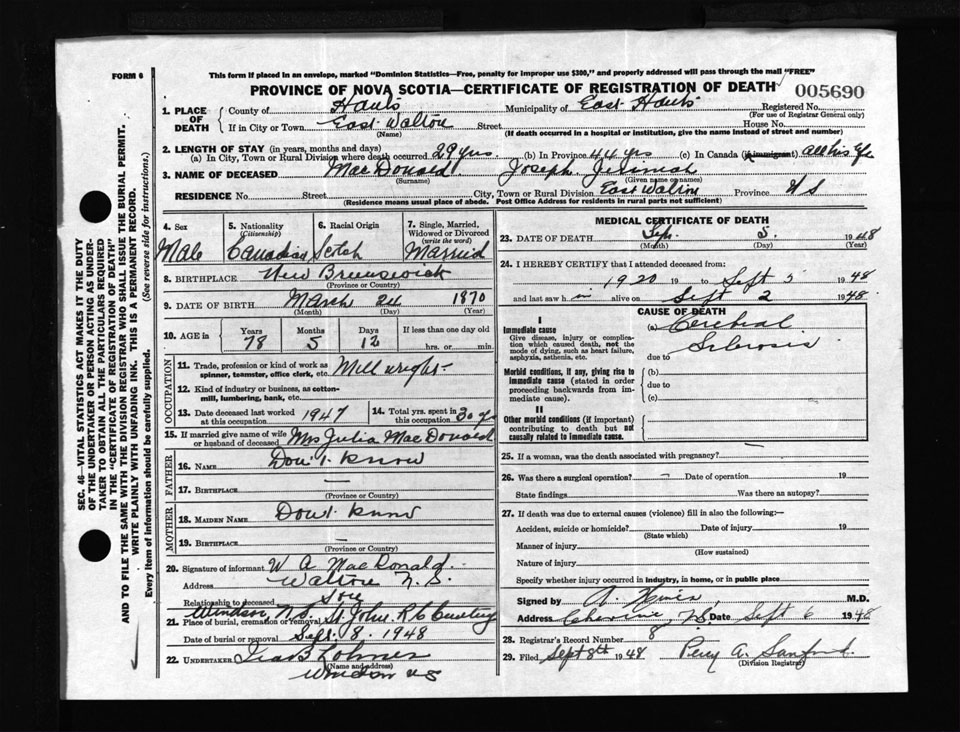 FORM 6
This form if placed in an envelope, marked "Dominion Statistics—Free, penalty for improper use $300," and properly addressed will pass through the mail "FREE"
PROVINCE OF NOVA SCOTIA—CERTIFICATE OF REGISTRATION OF DEATH 005690
1. PLACE OF DEATH
County of Hants Municipality of East Hants Registered No.
(For use of Registrar General only)
If in City or Town East Walton Street House No.
(Name) (If death occurred in a hospital or institution, give the name instead of street and number)
2. LENGTH OF STAY (in years, months and days)
(a) In City, Town or Rural Division where death occurred 29 yrs (b) In Province 44 yrs (c) In Canada (if immigrant) all his life
3. NAME OF DECEASED MacDonald Joseph
(Surname) (Given name or names)
RESIDENCE No. Street City, Town or Rural Division East Walton Province N S
(Residence means usual place of abode. Post Office Address for residents in rural parts not sufficient)
4. Sex Male
5. Nationality (Citizenship) Canadian
6. Racial Origin Scotch
7. Single, Married, Widowed or Divorced (write the word) Married
8. BIRTHPLACE New Brunswick
(Province or Country)
9. DATE OF BIRTH March 24 1870
(Month) (Day) (Year)
10. AGE in Years Months Days If less than one day old
78 5 12 hrs. or min.
OCCUPATION
11. Trade, profession or kind of work as spinner, teamster, office clerk, etc. Millwright
12. Kind of industry or business, as cotton-mill, lumbering, bank, etc.
13. Date deceased last worked at this occupation 1947
14. Total yrs. spent in this occupation 30 yrs
15. If married give name of wife or husband of deceased Mrs Julia MacDonald
FATHER
16. NAME Don't Know
17. BIRTHPLACE —
(Province or Country)
MOTHER
18. MAIDEN NAME Don't know
19. BIRTHPLACE —
(Province or Country)
20. Signature of informant W A MacDonald
Address Walton N. S.
Relationship to deceased Son
Windsor N.S. St. John. R C Cemetery
21. Place of burial, cremation or removal
Date of burial or removal Sept. 8. 1948
22. UNDERTAKER Ira B
(Name and address)
Windsor NS
MEDICAL CERTIFICATE OF DEATH
23. DATE OF DEATH Sep. 5. 1948
(Month) (Day) (Year)
24. I HEREBY CERTIFY that I attended deceased from:
1920 19 to Sept 5 1948
and last saw h im alive on Sept 2 1948.
CAUSE OF DEATH
I
Immediate cause
Give disease, injury or complication which caused death, not the mode of dying, such as heart failure, asphyxia, asthenia, etc.
(a) Cerebral
Sclerosis
due to
Morbid conditions, if any, giving rise to immediate cause (stated in order proceeding backwards from immediate cause).
(b)
due to
(c)
II
Other morbid conditions (if important) contributing to death but not causally related to immediate cause.
25. If a woman, was the death associated with pregnancy? —
26. Was there a surgical operation? — Date of operation 19
State findings Was there an autopsy?
27. If death was due to external causes (violence) fill in also the following:—
Accident, suicide or homicide? Date of injury 19
(State which)
Manner of injury
(How sustained)
Nature of injury
Specify whether injury occurred in industry, in home, or in public place
Signed by A. M.D.
Address N.S. Date Sept 6 1948
28. Registrar's Record Number 8
29. Filed Sept 8th 1948 Percy A. Sanford
(Division Registrar)
SEC. 46—VITAL STATISTICS ACT MAKES IT THE DUTY
OF THE UNDERTAKER OR PERSON ACTING AS UNDER-
TAKER TO OBTAIN ALL THE PARTICULARS REQUIRED
IN THE "CERTIFICATE OF REGISTRATION OF DEATH"
AND TO FILE THE SAME WITH THE DIVISION REGISTRAR WHO SHALL ISSUE THE BURIAL PERMIT.
WRITE PLAINLY WITH UNFADING INK. THIS IS A PERMANENT RECORD.
Every item of information should be carefully supplied. (See reverse side for instructions.)